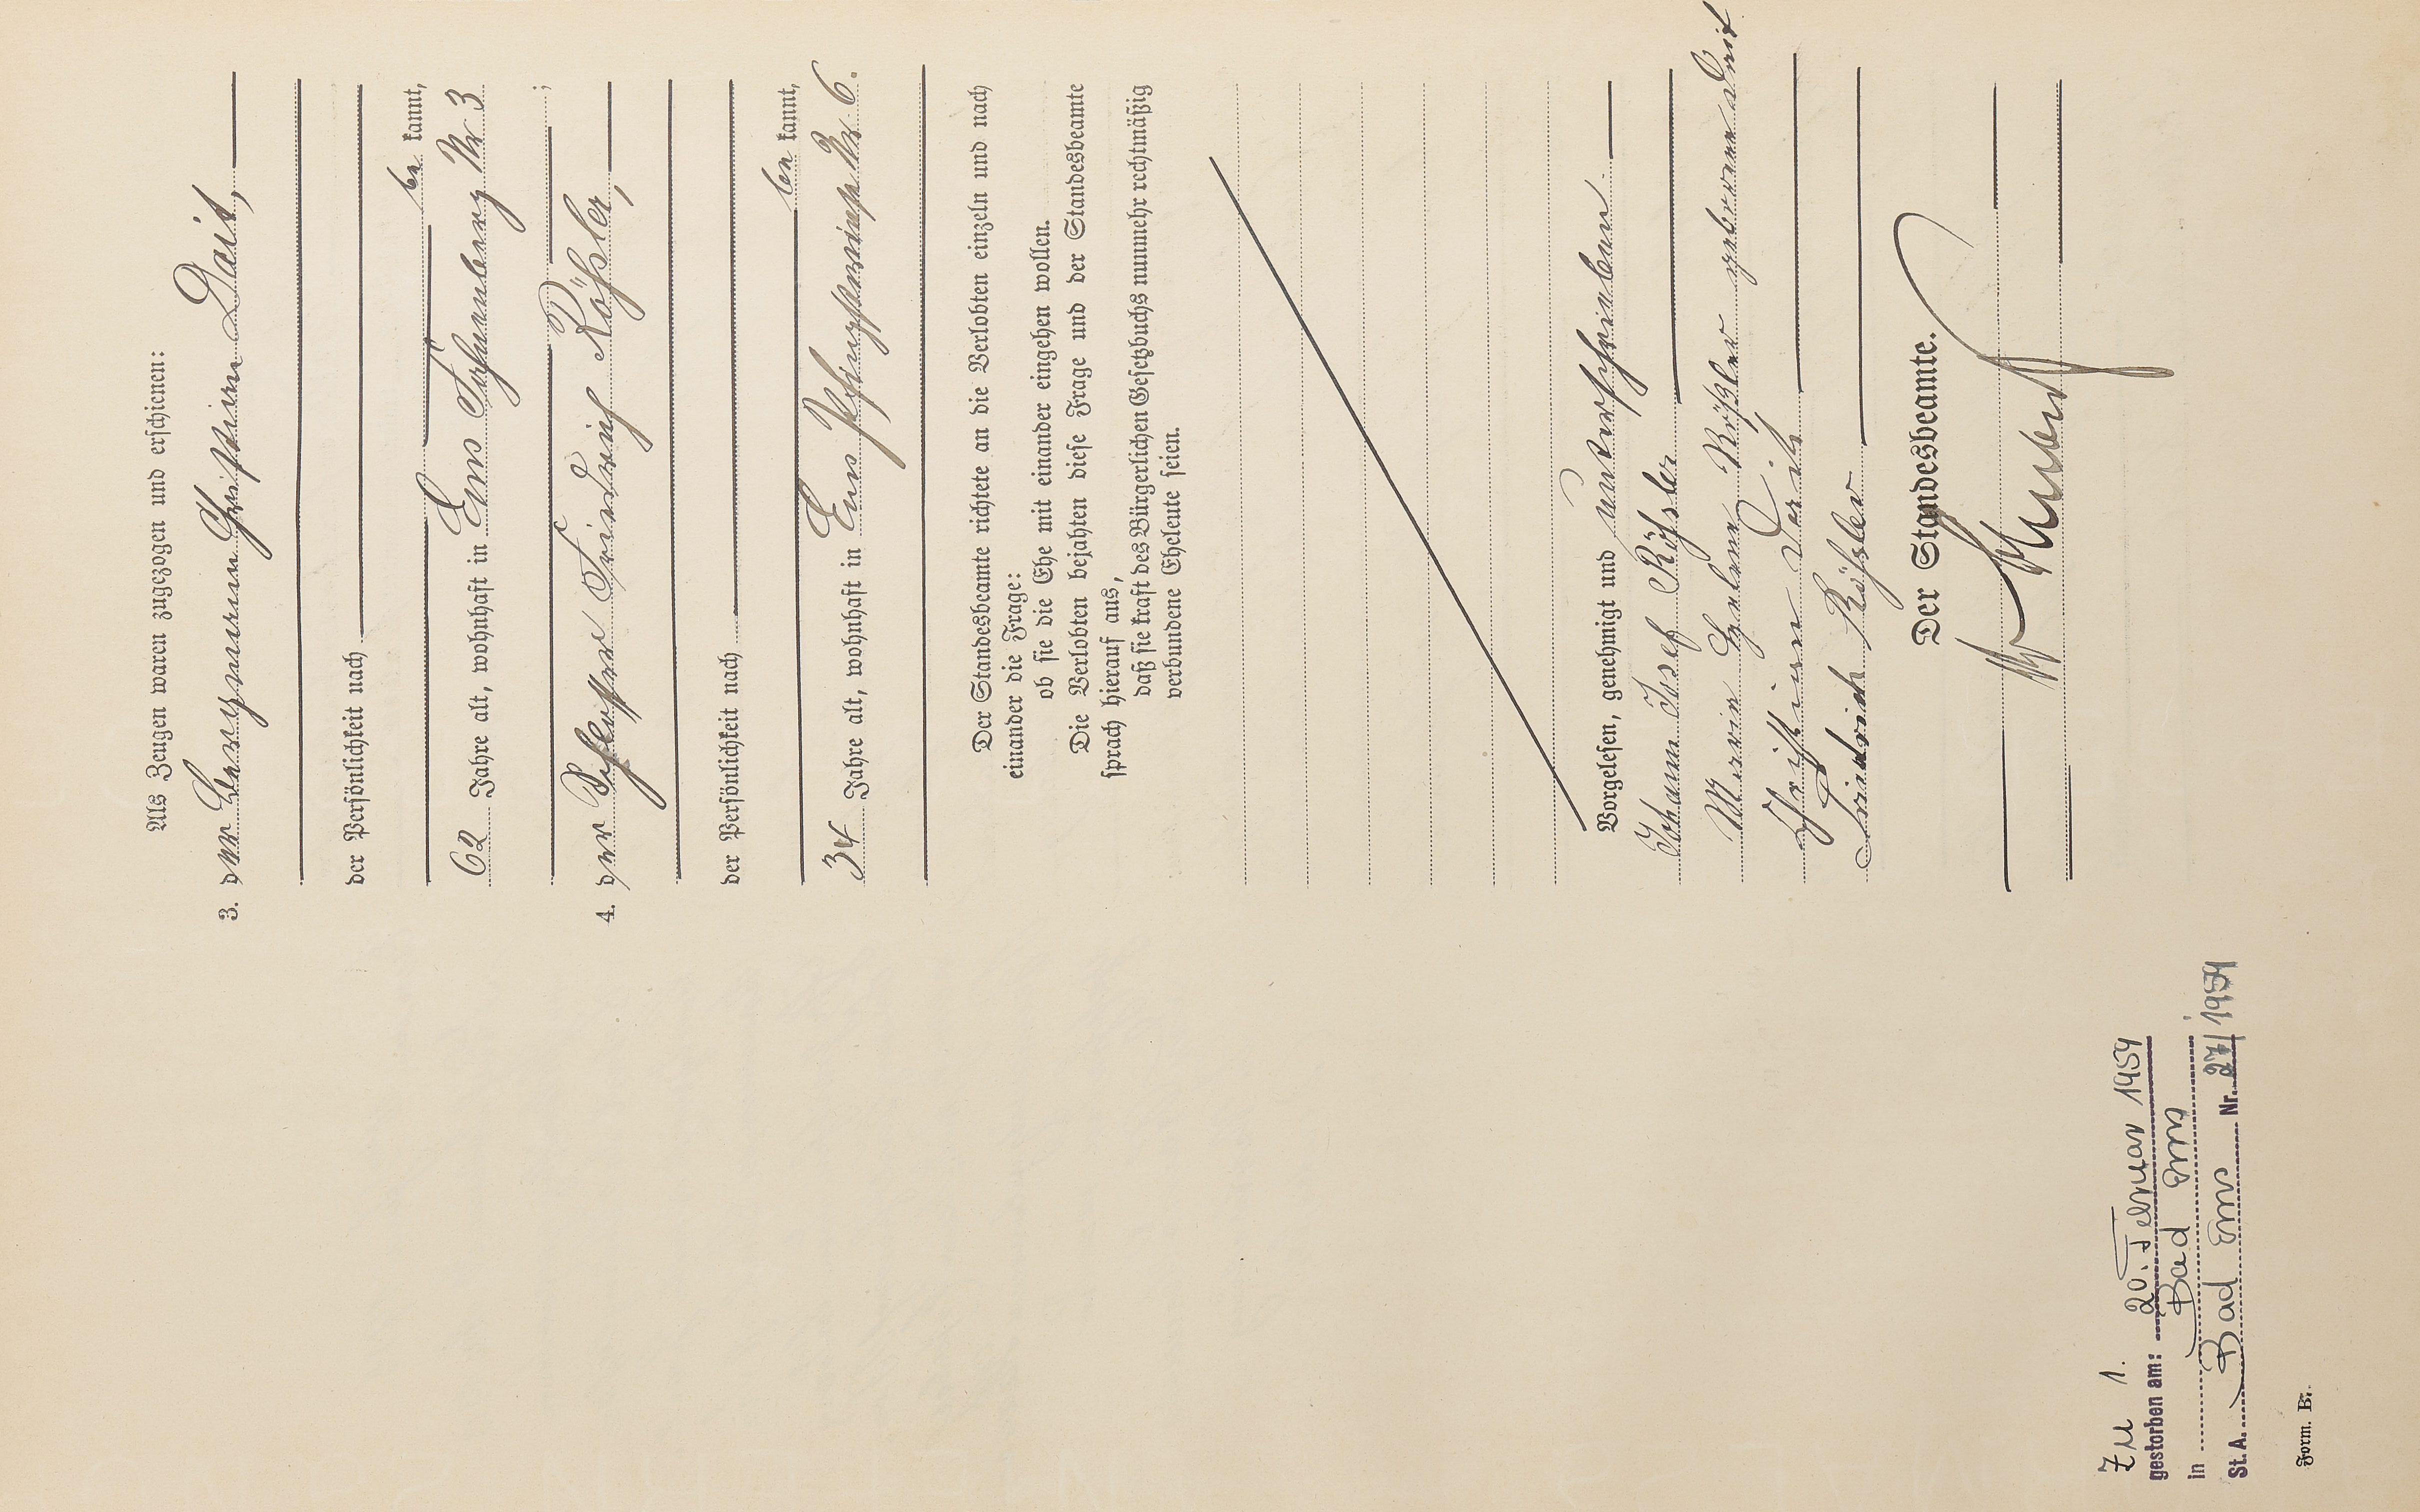 Als Zeugen waren zugezogen und erschienen:
3. der Bergmann Christian Deit,
der Persönlichkeit nach
be kannt,
62 Jahre alt, wohnhaft in Ems Fahnenberg Nr 3
;
4. der Schlosser Friedrich Rößler,
der Persönlichkeit nach
be kannt,
34 Jahre alt, wohnhaft in Ems Nr 6.
Der Standesbeamte richtete an die Verlobten einzeln und nach
einander die Frage:
ob sie die Ehe mit einander eingehen wollen.
Die Verlobten bejahten diese Frage und der Standesbeamte
sprach hierauf aus,
daß sie kraft des Bürgerlichen Gesetzbuchs nunmehr rechtmäßig
verbundene Eheleute seien.
Vorgelesen, genehmigt und unterschrieben
Johann Josef Rößler
Maria Helene Rößler geborene Deit
Christian Deit
Friedrich Rößler
Der Standesbeamte.
Zu 1.
gestorben am: 20. Februar 1959
in Bad Ems
St. A. Bad Ems Nr. 27/1959
Form. B.